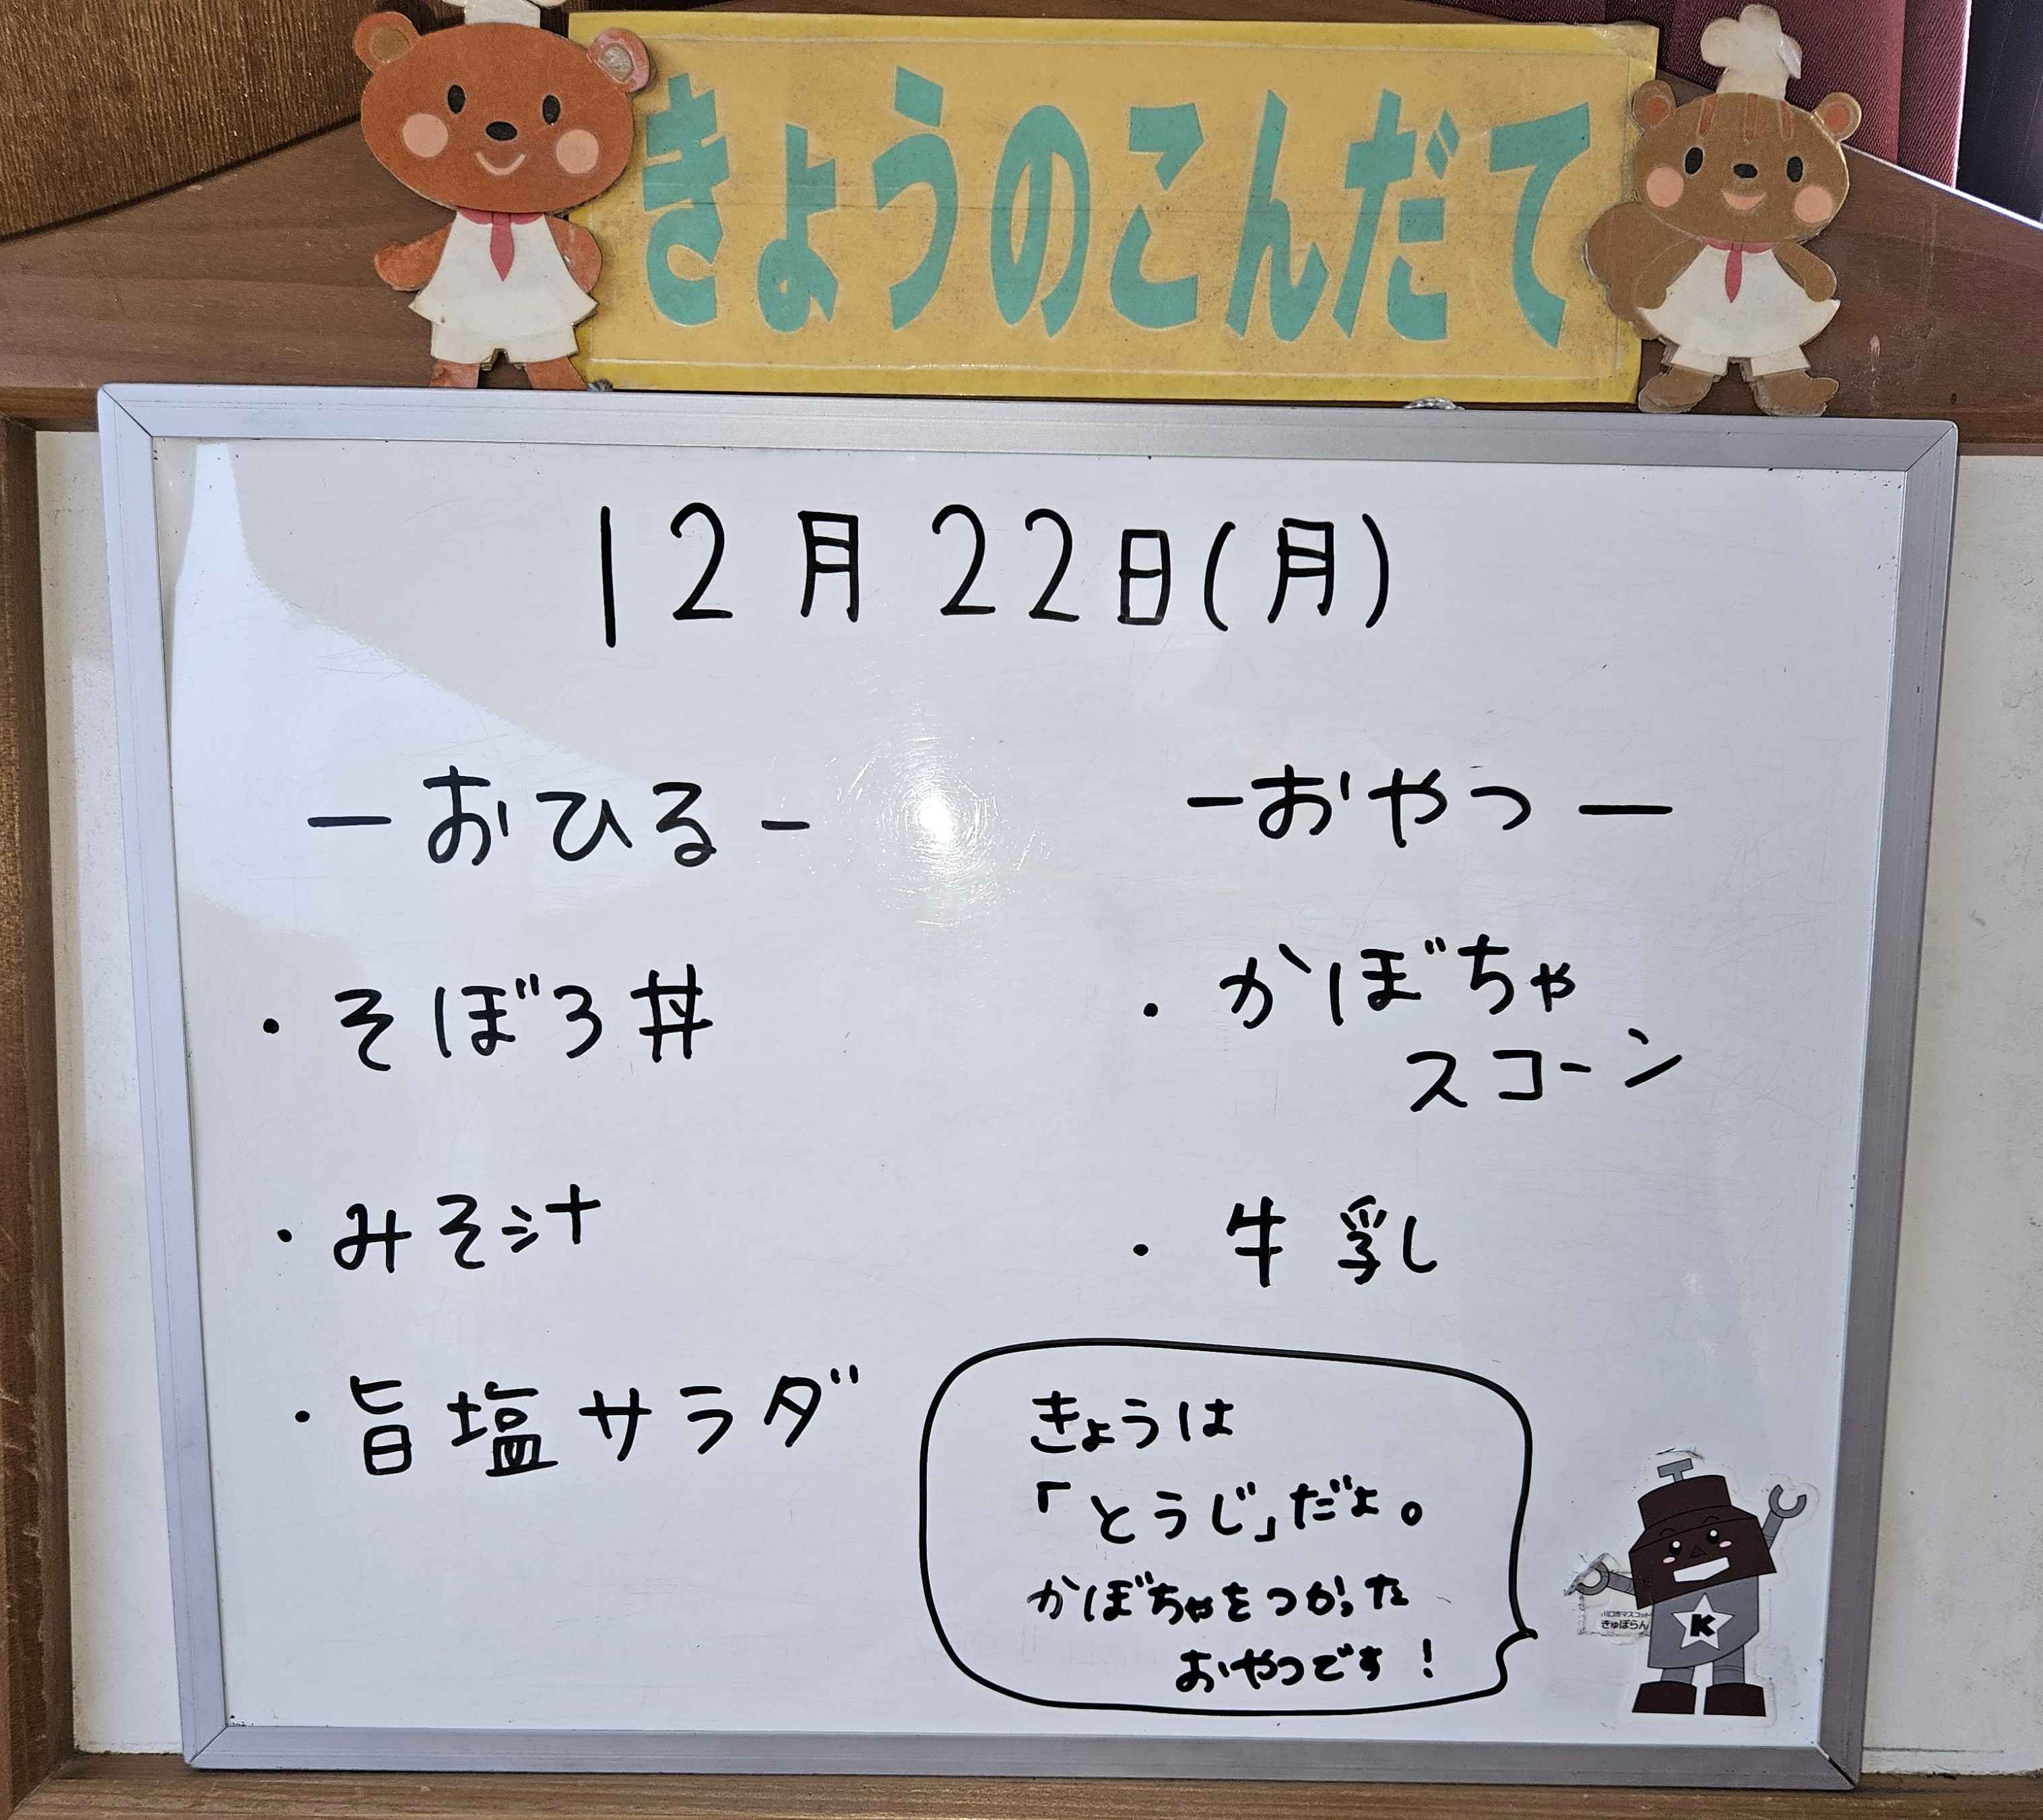 きょうのこんだて
12月22日(月)
－おひる－
・そぼろ丼
・みそ汁
・旨塩サラダ
－おやつ－
・かぼちゃ
スコーン
・牛乳
きょうは
「とうじ」だよ。
かぼちゃをつかった
おやつです！
川口市マスコット
きゅぽらん
K